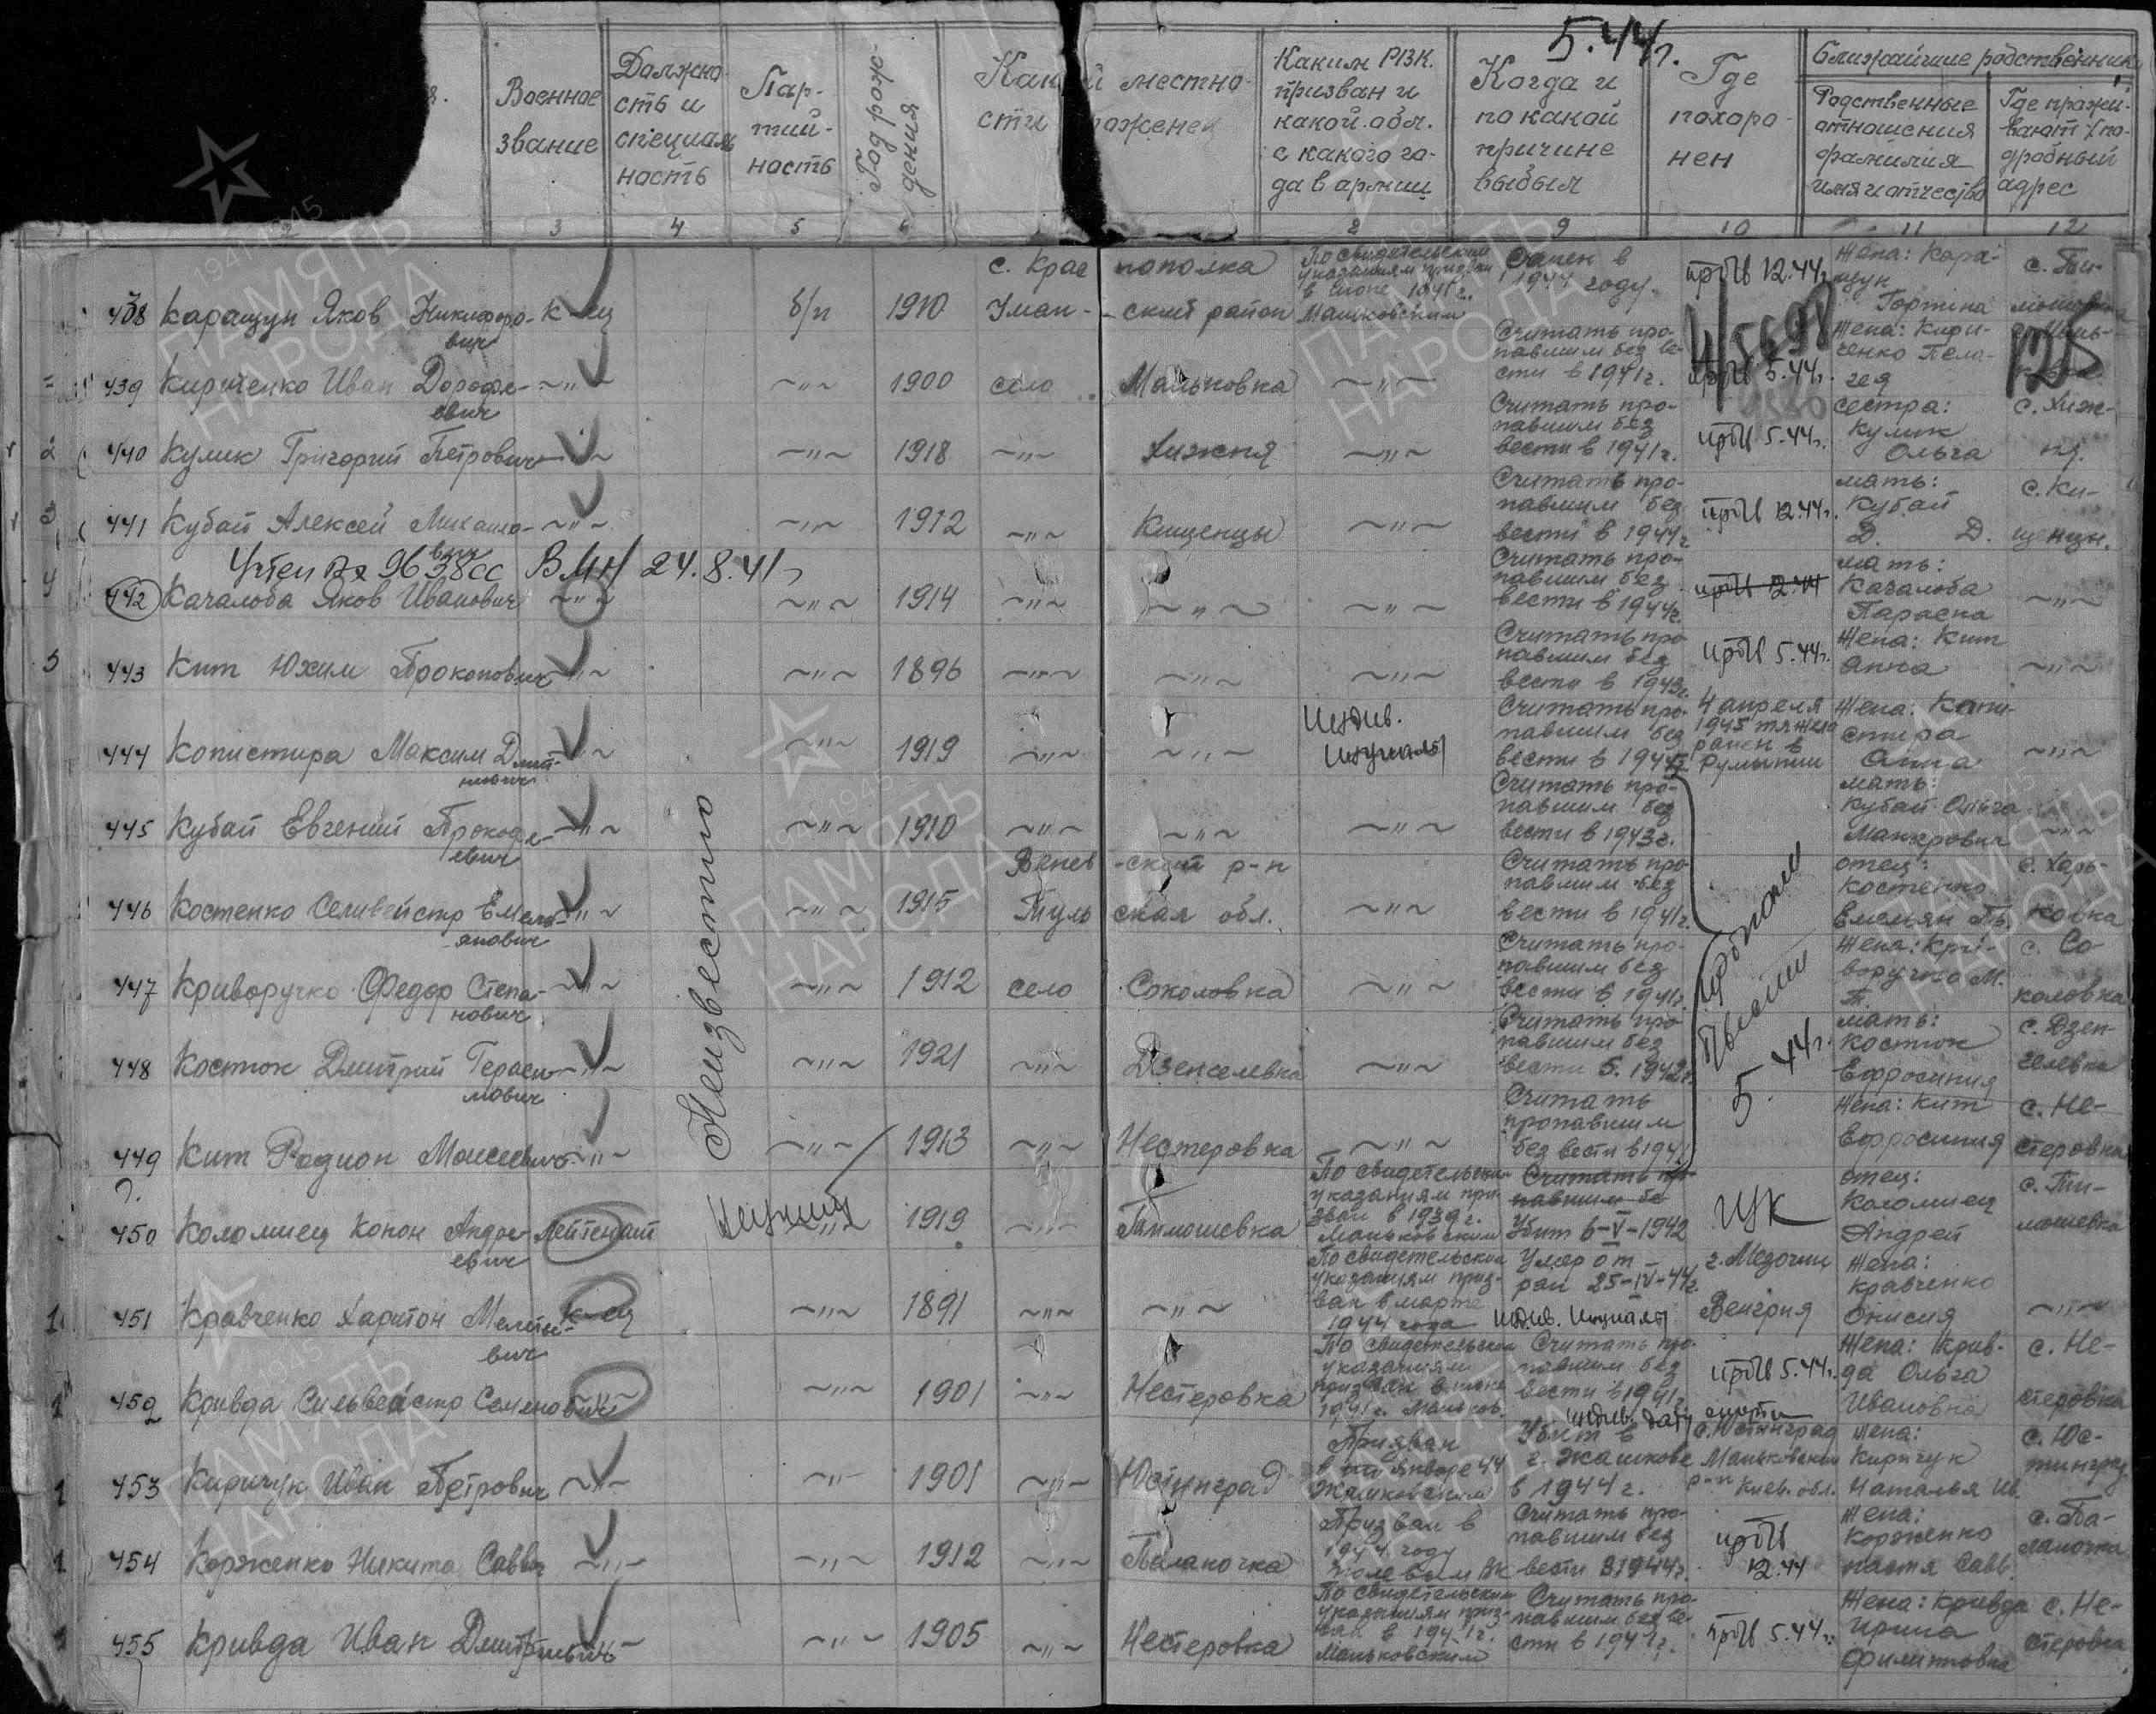 5.44г.
Военное звание
Должность и специальность
Партийность
Год рождения
Какой местности уроженец
Каким РВК. призван и какой обл. с какого года в армии
Когда и по какой причине выбыл
Где похоронен
Ближайшие родственники
Родственные отношения фамилия имя и отчество
Где проживают подробный адрес
2 3 4 5 6 8 9 10 11 12
438 Каращук Яков Никифорович к-ец б/п 1910 с. Краснополка Уманский район По свидетельским указаниям призван в июне 1941г. Маньковским 1944 году. проп 12.44г. Жена: Каращук
439 Кириченко Иван Дорофеевич -"- -"- 1900 село Маньковка -"- Считать пропавшим без вести в 1941г. проп 5.44г. Жена: Кириченко Пелагея
125
440 Кулик Григорий Петрович -"- -"- 1918 -"- Хижня -"- Считать пропавшим без вести в 1941г. проп 5.44г. сестра: Кулик Ольга с. Хижня.
441 Кубай Алексей Михайлович -"- -"- 1912 -"- Кищенцы -"- Считать пропавшим без вести в 1944г. проп 12.44г. мать: Кубай Д. Д. с. Кищенцы.
Учтен 24.8.41г
442 Качалоба Яков Иванович -"- -"- 1914 -"- -"- -"- Считать пропавшим без вести в 1944г. проп 12.44 мать: Качалоба Параска -"-
443 Кит Юхим Прокопович -"- -"- 1896 -"- -"- -"- Считать пропавшим без вести в 1943г. проп 5.44г. Жена: Кит Анна -"-
444 Копистира Максим Дмитриевич -"- -"- 1919 -"- -"- Считать пропавшим без вести в 1944г 4 апреля 1945 тяжело ранен в Румынии Жена: Копистира Анна -"-
445 Кубай Евгений -"- -"- 1910 -"- -"- -"- Считать пропавшим без вести в 1943г. мать: Кубай Ольга -"-
446 Костенко Селивейстр Емельянович -"- -"- 1915 Веневский р-н Тульская обл. -"- Считать пропавшим без вести в 1941г. отец: Костенко Емельян с. Харьковка
447 Криворучко Федор Степанович -"- -"- 1912 село Соколовка -"- Считать пропавшим без вести в 1941г. Жена: Криворучко М. Т. с. Соколовка
448 Костюк Дмитрий Герасимович -"- -"- 1921 -"- Дзенгелевка -"- Считать пропавшим без вести 5.1942г. мать: Костюк Ефросиния с. Дзенгелевка
449 Кит Родион Моисеевич -"- -"- 1913 -"- Нестеровка -"- Считать пропавшим без вести в 194 Жена: Кит Ефросиния с. Нестеровка
Неизвестно
5.44г.
450 Коломиец Конон Андреевич Лейтенант -"- 1919 -"- Тимошевка По свидетельским указаниям призван в 1939г. Маньковским Считать пропавшим бе Убит 6-V-1942 ГУК отец: Коломиец Андрей с. Тимошевка
451 Кравченко Харитон к-ец -"- 1891 -"- -"- По свидетельским указаниям призван в марте 1944 года Умер от ран 25-IV-44г. Венгрия Жена: Кравченко Онисия -"-
452 Кривда Сильвейстр Семенович -"- -"- 1901 -"- Нестеровка По свидетельским указаниям призван в июне 1941г. Маньков. Считать пропавшим без вести в 1941г. проп 5.44г. Жена: Кривда Ольга Ивановна с. Нестеровка
453 Киричук Иван Петрович -"- -"- 1901 -"- Юстинград Призван в январе 44 Жашковским Убит в г. Жашкове в 1944г. с. Юстинград Маньковский р-н Киев. обл. Жена: Киричук Наталья Ив. с. Юстинград
454 Корженко Никита Саввич -"- -"- 1912 -"- Паланочка Призван в 1944 году полевым ВК Считать пропавшим без вести в 1944г. проп 12.44 Жена: Корженко Настя Савв. с. Паланочка
455 Кривда Иван Дмитриевич -"- -"- 1905 -"- Нестеровка По свидетельским указаниям призван в 1941г. Маньковским Считать пропавшим без вести в 1941г. проп 5.44г. Жена: Кривда Ирина Филипповна с. Нестеровка
1941 1945
ПАМЯТЬ НАРОДА